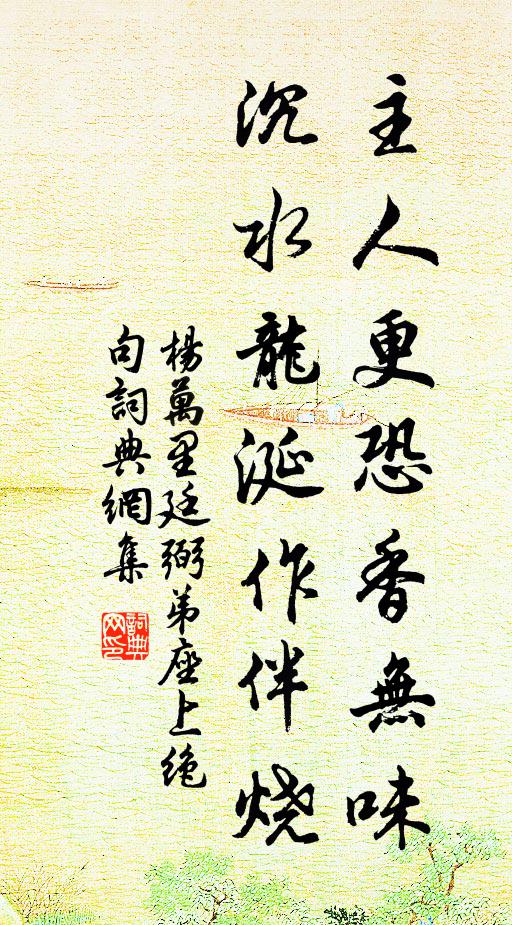 主人更恐香無味
沉水龍涎作伴燒
楊萬里廷弼弟座上绝
句詞典網集
詞典
网印